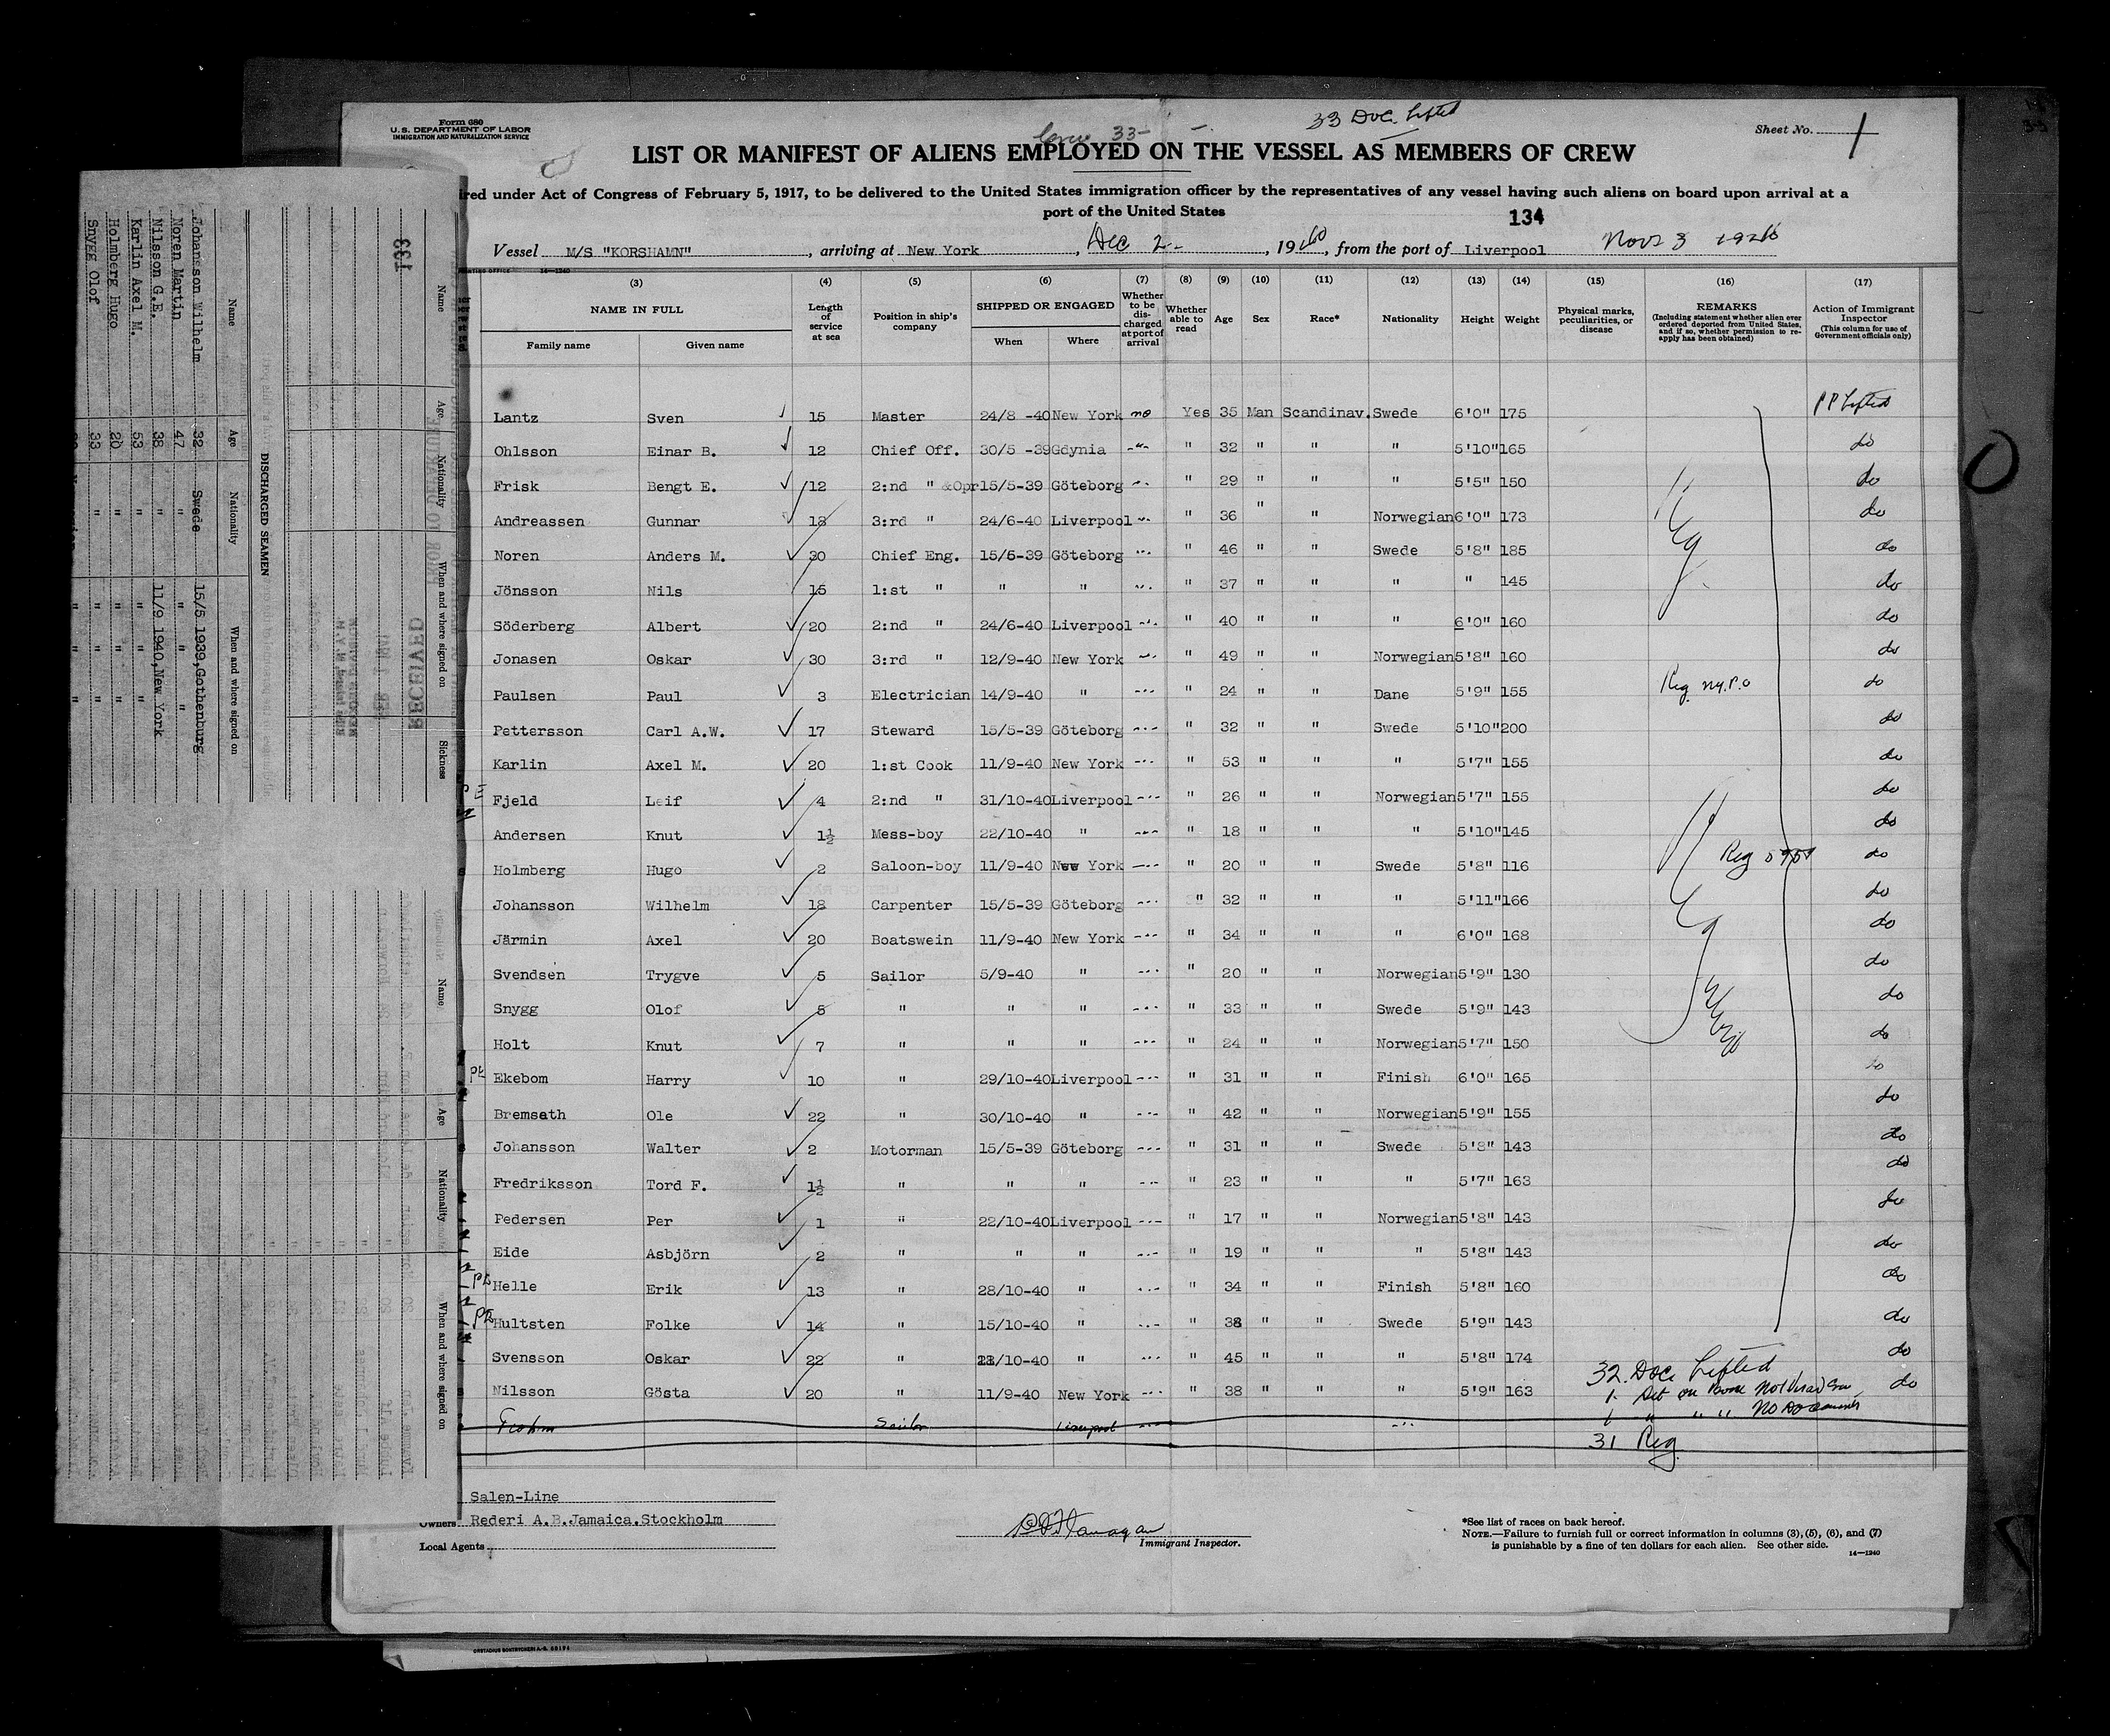 Form 680
U.S. DEPARTMENT OF LABOR
IMMIGRATION AND NATURALIZATION SERVICE
Crew 33-
33 Doc. Lifted
Sheet No. 1
LIST OR MANIFEST OF ALIENS EMPLOYED ON THE VESSEL AS MEMBERS OF CREW
ired under Act of Congress of February 5, 1917, to be delivered to the United States immigration officer by the representatives of any vessel having such aliens on board upon arrival at a
port of the United States
134
Vessel M/S "KORSHAMN", arriving at New York, Dec 2-, 1940, from the port of Liverpool Nov 3
14—1240
(3) (4) (5) (6) (7) (8) (9) (10) (11) (12) (13) (14) (15) (16) (17)
NAME IN FULL Length of service at sea Position in ship's company SHIPPED OR ENGAGED Whether to be discharged at port of arrival Whether able to read Age Sex Race* Nationality Height Weight Physical marks, peculiarities, or disease REMARKS (Including statement whether alien ever ordered deported from United States, and if so, whether permission to re-apply has been obtained) Action of Immigrant Inspector (This column for use of Government officials only)
Family name Given name When Where
Lantz Sven 15 Master 24/8 -40 New York no Yes 35 Man Scandinav. Swede 6'0" 175 PP Lifted
Ohlsson Einar B. 12 Chief Off. 30/5 -39 Gdynia -"- " 32 " " " 5'10" 165 do
Frisk Bengt E. 12 2:nd " &Opr 15/5-39 Göteborg -"- " 29 " " " 5'5" 150 do
Andreassen Gunnar 18 3:rd " 24/6-40 Liverpool -"- " 36 " " Norwegian 6'0" 173 do
Noren Anders M. 30 Chief Eng. 15/5-39 Göteborg -"- " 46 " " Swede 5'8" 185 do
Jönsson Nils 15 1:st " " " -"- " 37 " " " " 145 do
Söderberg Albert 20 2:nd " 24/6-40 Liverpool -"- " 40 " " " 6'0" 160 do
Jonasen Oskar 30 3:rd " 12/9-40 New York -"- " 49 " " Norwegian 5'8" 160 do
Paulsen Paul 3 Electrician 14/9-40 " -"- " 24 " " Dane 5'9" 155 Reg. N.Y.P.O do
Pettersson Carl A.W. 17 Steward 15/5-39 Göteborg -"- " 32 " " Swede 5'10" 200 do
Karlin Axel M. 20 1:st Cook 11/9-40 New York -"- " 53 " " " 5'7" 155 do
Fjeld Leif 4 2:nd " 31/10-40 Liverpool -"- " 26 " " Norwegian 5'7" 155 do
Andersen Knut 1½ Mess-boy 22/10-40 " -"- " 18 " " " 5'10" 145 do
Holmberg Hugo 2 Saloon-boy 11/9-40 New York -"- " 20 " " Swede 5'8" 116 Reg do
Johansson Wilhelm 18 Carpenter 15/5-39 Göteborg -"- " 32 " " " 5'11" 166 do
Järmin Axel 20 Boatswein 11/9-40 New York -"- " 34 " " " 6'0" 168 do
Svendsen Trygve 5 Sailor 5/9-40 " -"- " 20 " " Norwegian 5'9" 130 do
Snygg Olof 5 " " " -"- " 33 " " Swede 5'9" 143 do
Holt Knut 7 " " " -"- " 24 " " Norwegian 5'7" 150 do
PE Ekebom Harry 10 " 29/10-40 Liverpool -"- " 31 " " Finish 6'0" 165 do
Bremsath Ole 22 " 30/10-40 " -"- " 42 " " Norwegian 5'9" 155 do
Johansson Walter 2 Motorman 15/5-39 Göteborg -"- " 31 " " Swede 5'8" 143 do
Fredriksson Tord F. 1½ " " " -"- " 23 " " " 5'7" 163 do
Pedersen Per 1 " 22/10-40 Liverpool -"- " 17 " " Norwegian 5'8" 143 do
Eide Asbjörn 2 " " " -"- " 19 " " " 5'8" 143 do
PE Helle Erik 13 " 28/10-40 " -"- " 34 " " Finish 5'8" 160 do
PE Hultsten Folke 14 " 15/10-40 " -"- " 38 " " Swede 5'9" 143 do
Svensson Oskar 22 " /10-40 " -"- " 45 " " " 5'8" 174 do
Nilsson Gösta 20 " 11/9-40 New York -"- " 38 " " " 5'9" 163 do
32 Docs Lifted
1 Det on Board Not
1 " " " No Documents
Sailor Liverpool
31 Reg
Salen-Line
Owners Rederi A.B.Jamaica.Stockholm
Local Agents
Immigrant Inspector.
*See list of races on back hereof.
NOTE.—Failure to furnish full or correct information in columns (3), (5), (6), and (7)
is punishable by a fine of ten dollars for each alien. See other side.
14—1240
133
Name Age Nationality When and where signed on Sickness
RECEIVED
DISCHARGED SEAMEN
Name Age Nationality When and where signed on
Johansson Wilhelm 32 Swede 15/5 1939, Gothenburg
Noren Martin 47 " " "
Nilsson G.E. 38 " 11/9 1940, New York
Karlin Axel M. 53 " " "
Holmberg Hugo 20 " " "
Snygg Olof 33 " " "
Name Age Nationality When and where signed on